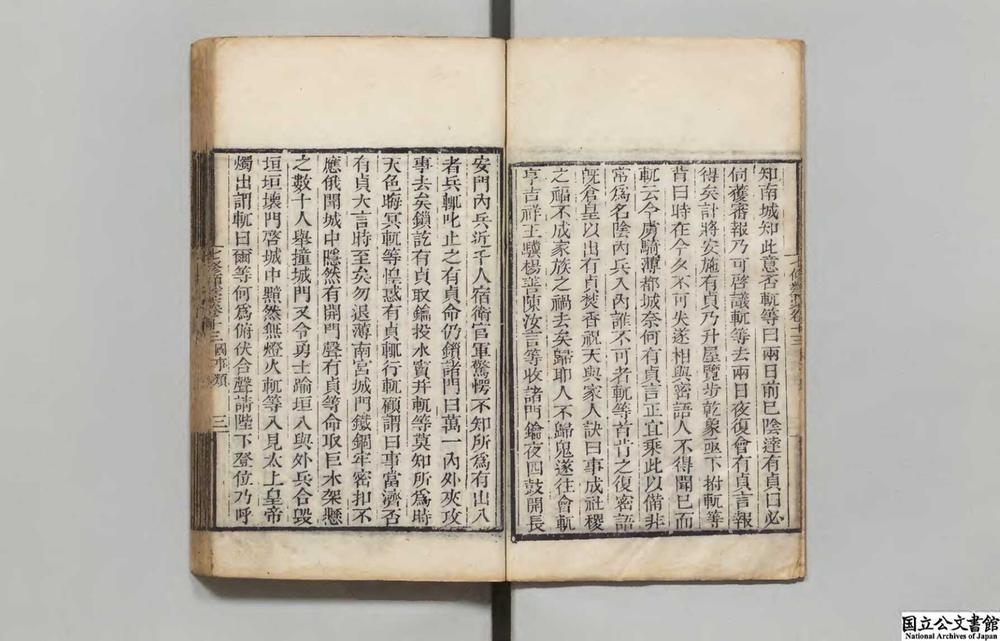 知南城知此意否軏等曰兩日前已陰逹有貞曰必
伺獲審報乃可啓議軏等去兩日夜復會有貞言報
得矣計將安施有貞乃升屋覽步乾象亟下拊軏等
肯曰時在今夕不可失遂相與密語人不得聞已而
軏云今虜騎薄都城奈何有貞言正宜乘此以備非
常爲名陰內兵入內誰不可者軏等首肯之復密語
旣倉皇以出有貞焚香祝天與家人訣曰事成社稷
之福不成家族之禍去矣歸耶人不歸鬼遂往會軏
亨吉祥王驥楊善陳汝言等收諸門鑰夜四鼓開長
安門內兵近千人宿衛官軍驚愕不知所爲有出入
者兵輒叱止之有貞命仍鎖諸門曰萬一內外夾攻
事去矣鎖訖有貞取鑰投水竇并軏等莫知所爲時
天色晦冥軏等惶惑有貞輒行軏顧謂曰事當濟否
有貞大言時至矣勿退薄南宮城門鐵錮牢密扣不
應俄聞城中隱然有開門聲有貞等命取巨木架懸
之數十人舉撞城門又令勇士踰垣入與外兵合毀
垣垣壞門啓城中黯然無燈火軏等入見太上皇帝
燭出謂軏曰爾等何爲俯伏合聲請陛下登位乃呼
七修類稿卷十三 國事類 三